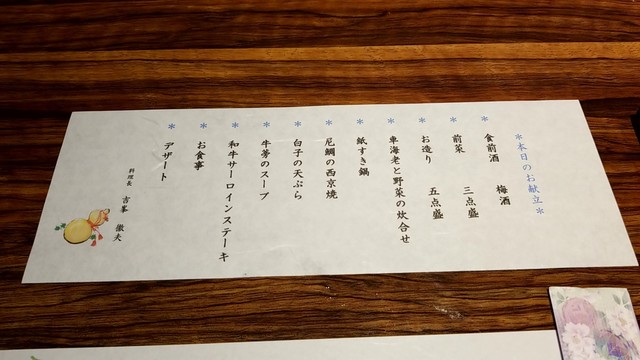 ＊本日のお献立＊
＊ 食前酒 梅酒
＊ 前菜 三点盛
＊ お造り 五点盛
＊ 車海老と野菜の炊合せ
＊ 紙すき鍋
＊ 尼鯛の西京焼
＊ 白子の天ぷら
＊ 牛蒡のスープ
＊ 和牛サーロインステーキ
＊ お食事
＊ デザート
料理長 吉峯 徹夫